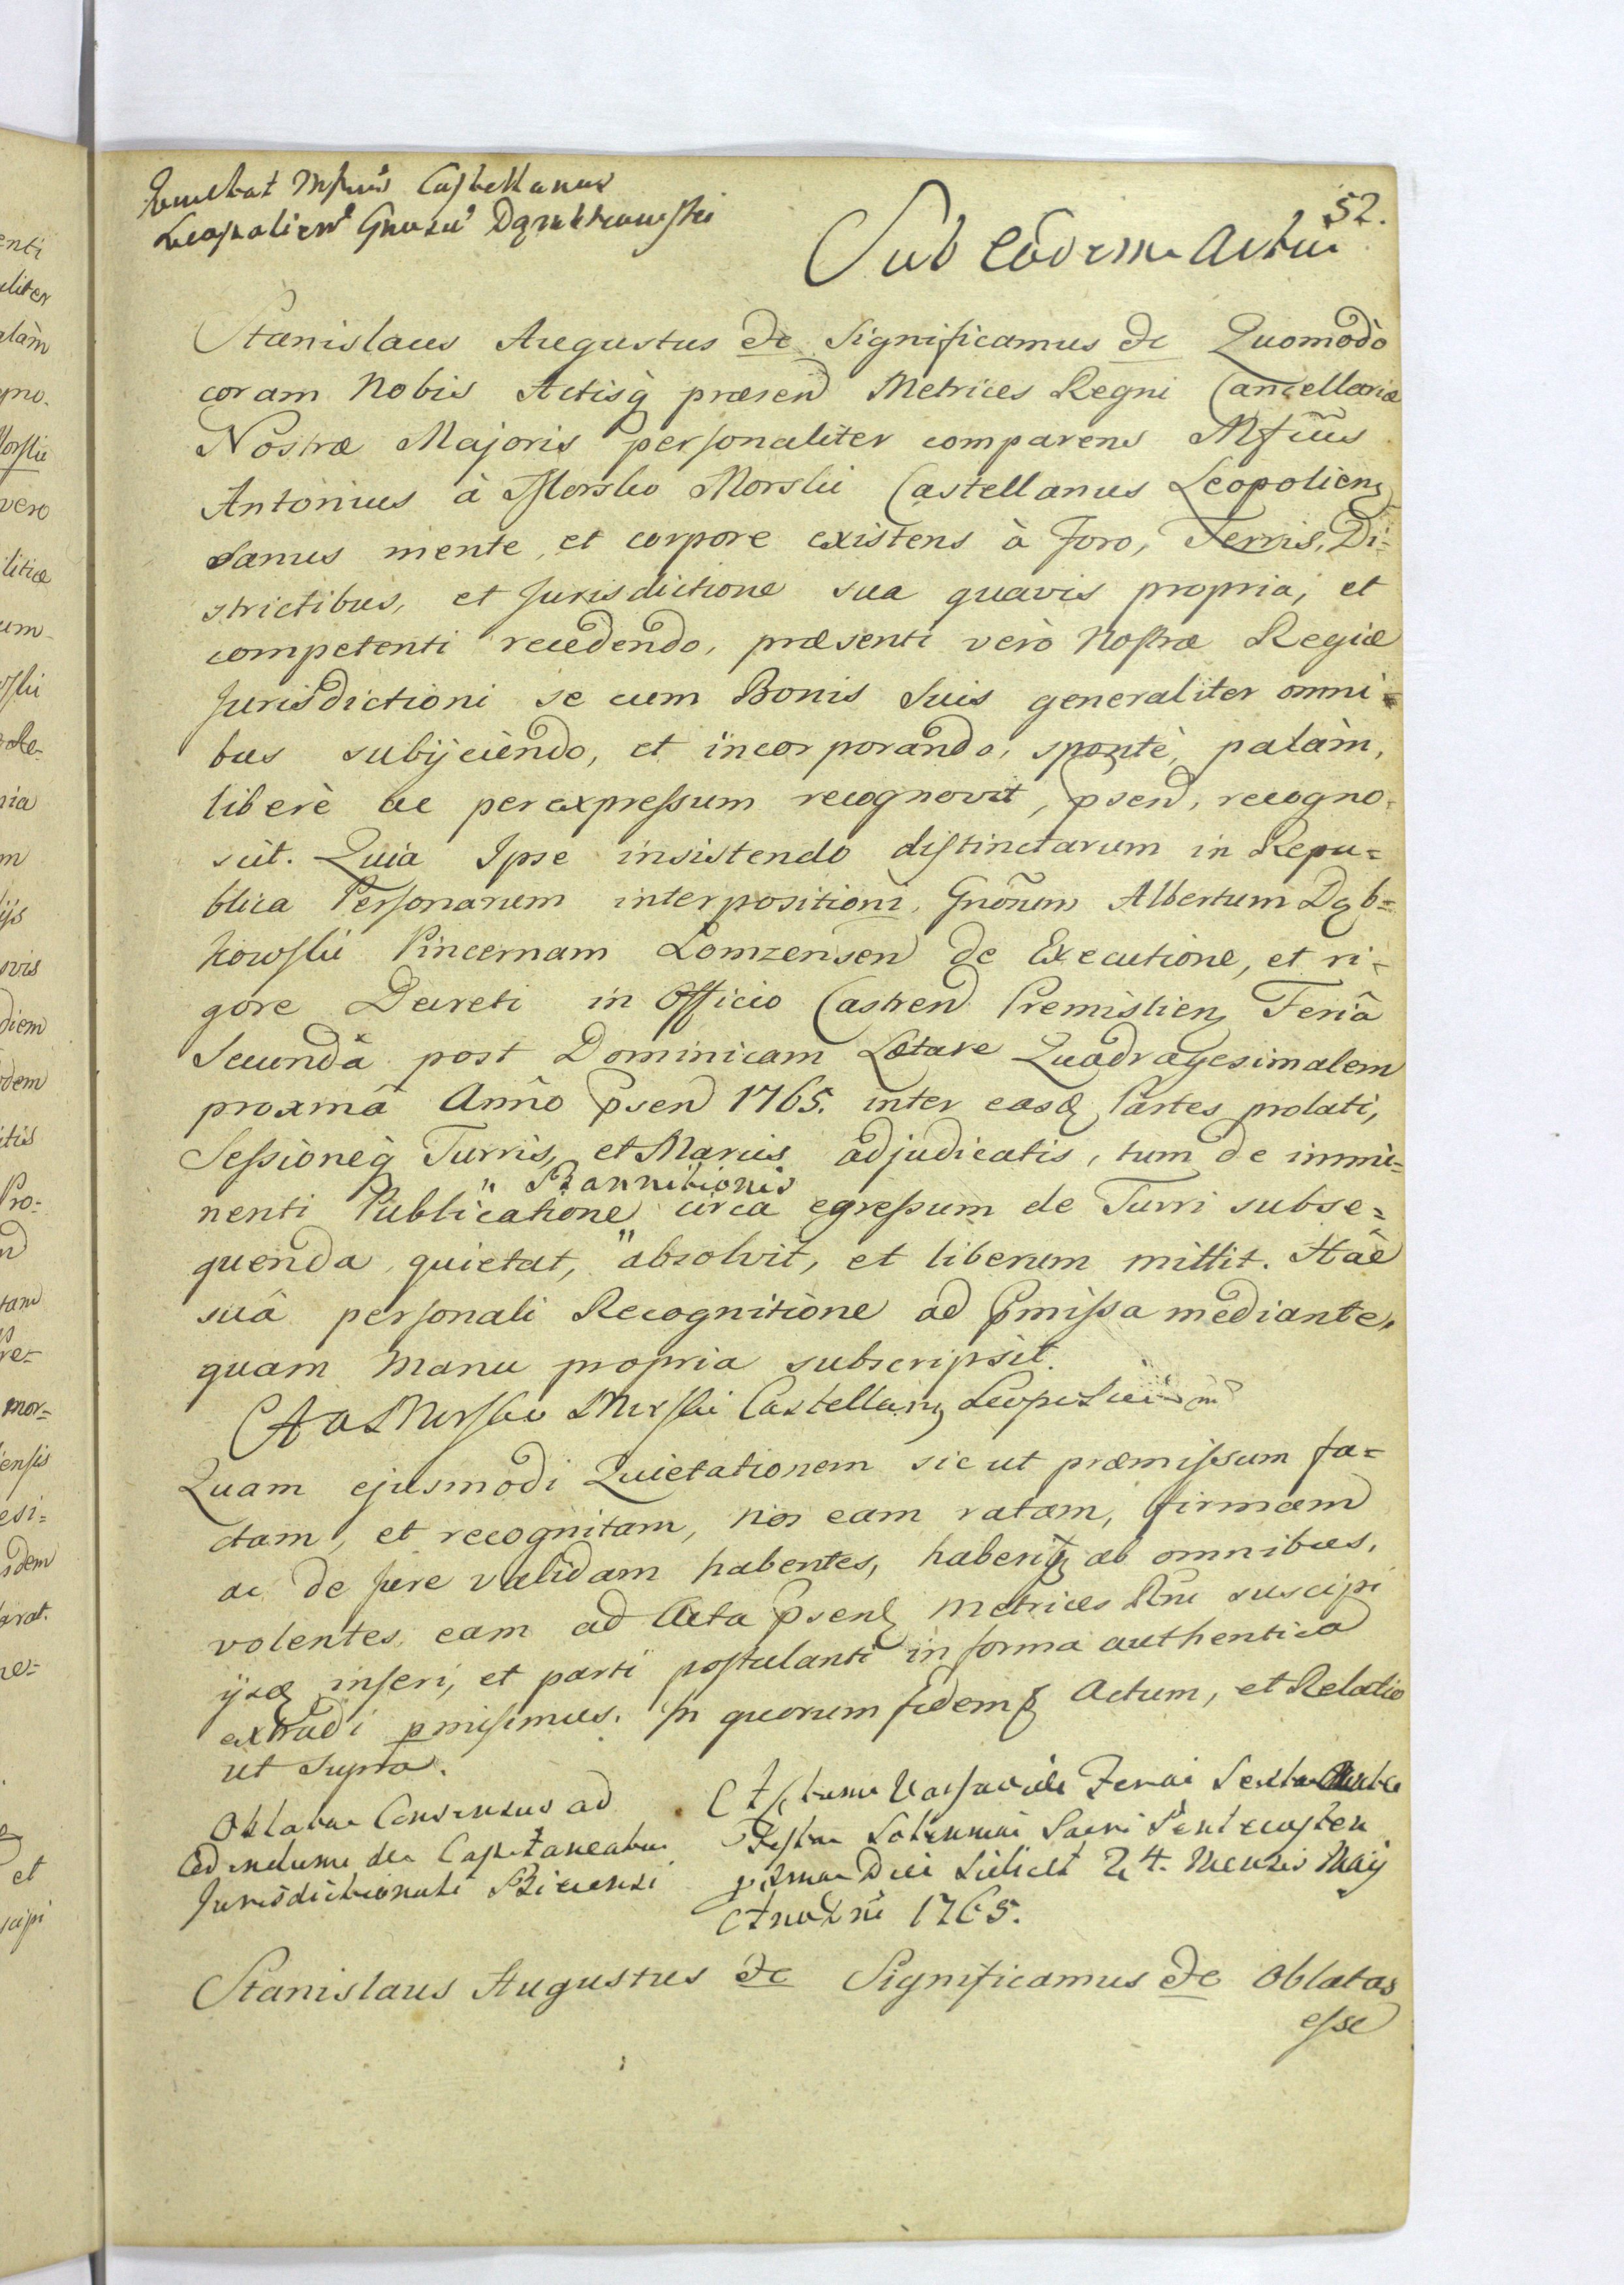 52.
Castellanus
Sub Eodem Actu
Stanislaus Augustus &c Significamus &c Quomodò
coram Nobis Actisq̀ præsen Metrices Regni Cancellariæ
Nostræ Majoris personaliter comparens Mfcus
Antonius à Morsko Morski Castellanus Leopolien
Sanus mente, et corpore existens à Foro, Terris, Di=
strictibus, et Jurisdictione sua quavis propria, et
competenti recedendo, præsenti verò Nostræ Regiæ
Jurisdictioni se cum Bonis Suis generaliter omni=
bus subijciendo, et incorporando, spontè, palàm,
liberè ac per expressum recognovit, psen, recogno=
scit. Quia Ipse insistendo distinctarum in Repu=
blica Personarum interpositioni, Gnõrum Albertum Dąb=
kowski Pincernam Lomzensen de Executione, et ri=
gore Decreti in Officio Castren Premislien Feriâ
Secundâ post Dominicam Lætare Quadragesimalem
proximâ Anno psen 1765. inter easq Partes prolati,
Sessioneq̀ Turris, et Marcis adjudicatis, tum de immi=
" Bannitionis
nenti Publicatione " circa egressum de Turri subse=
quenda quietat, absolvit, et liberum mittit. Hâc
suâ personali Recognitione ad pmissa mediante,
quam Manu propria subscripsit.
A a Morsko Morski Castellan
Quam ejusmodi Quietationem sic ut præmissum fa=
ctam, et recognitam, nos eam ratam, firmam
ac de Jure validam habentes, haberiq ab omnibus,
volentes, eam ad Acta psen Metrices Rni suscipi
ijsq inseri, et parti postulanti in forma authentica
extradi pmisimus. In quorum fidem Actum, et Relatio
ut supra.
Oblata Consensus ad
Cedendum de Capitaneatu
Jurisdictionali
Actum Varsaviæ Feria Sexta Ante
Festa Solennia Sacri Pentecosten
pxima Die scilicet 24. Mensis Maij
Ano Dni 1765.
Stanislaus Augustus &c Significamus &c Oblatas
esse